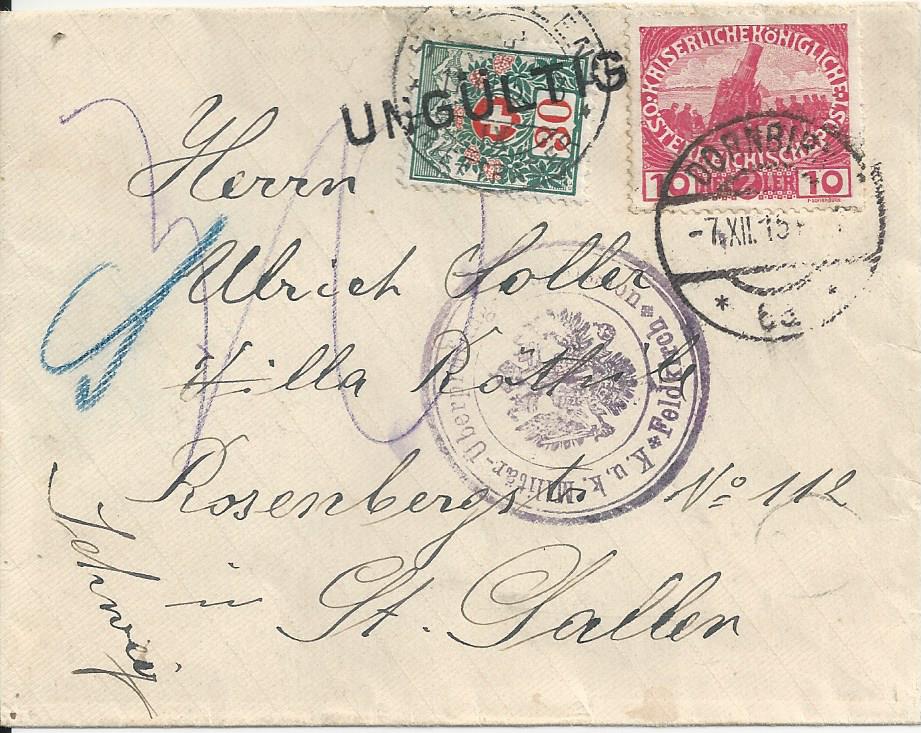 UNGÜLTIG
30
KAISERLICHE KÖNIGLICHE
ÖSTERREICHISCHE POST
10 HELLER 10
DORNBIRN
-7.XII.15
* 6a *
Herrn
Ulrich Soller
Villa
Rosenbergstr No 112
in St. Gallen
Schweiz
K. u. k. Militär- * Feldkirch *